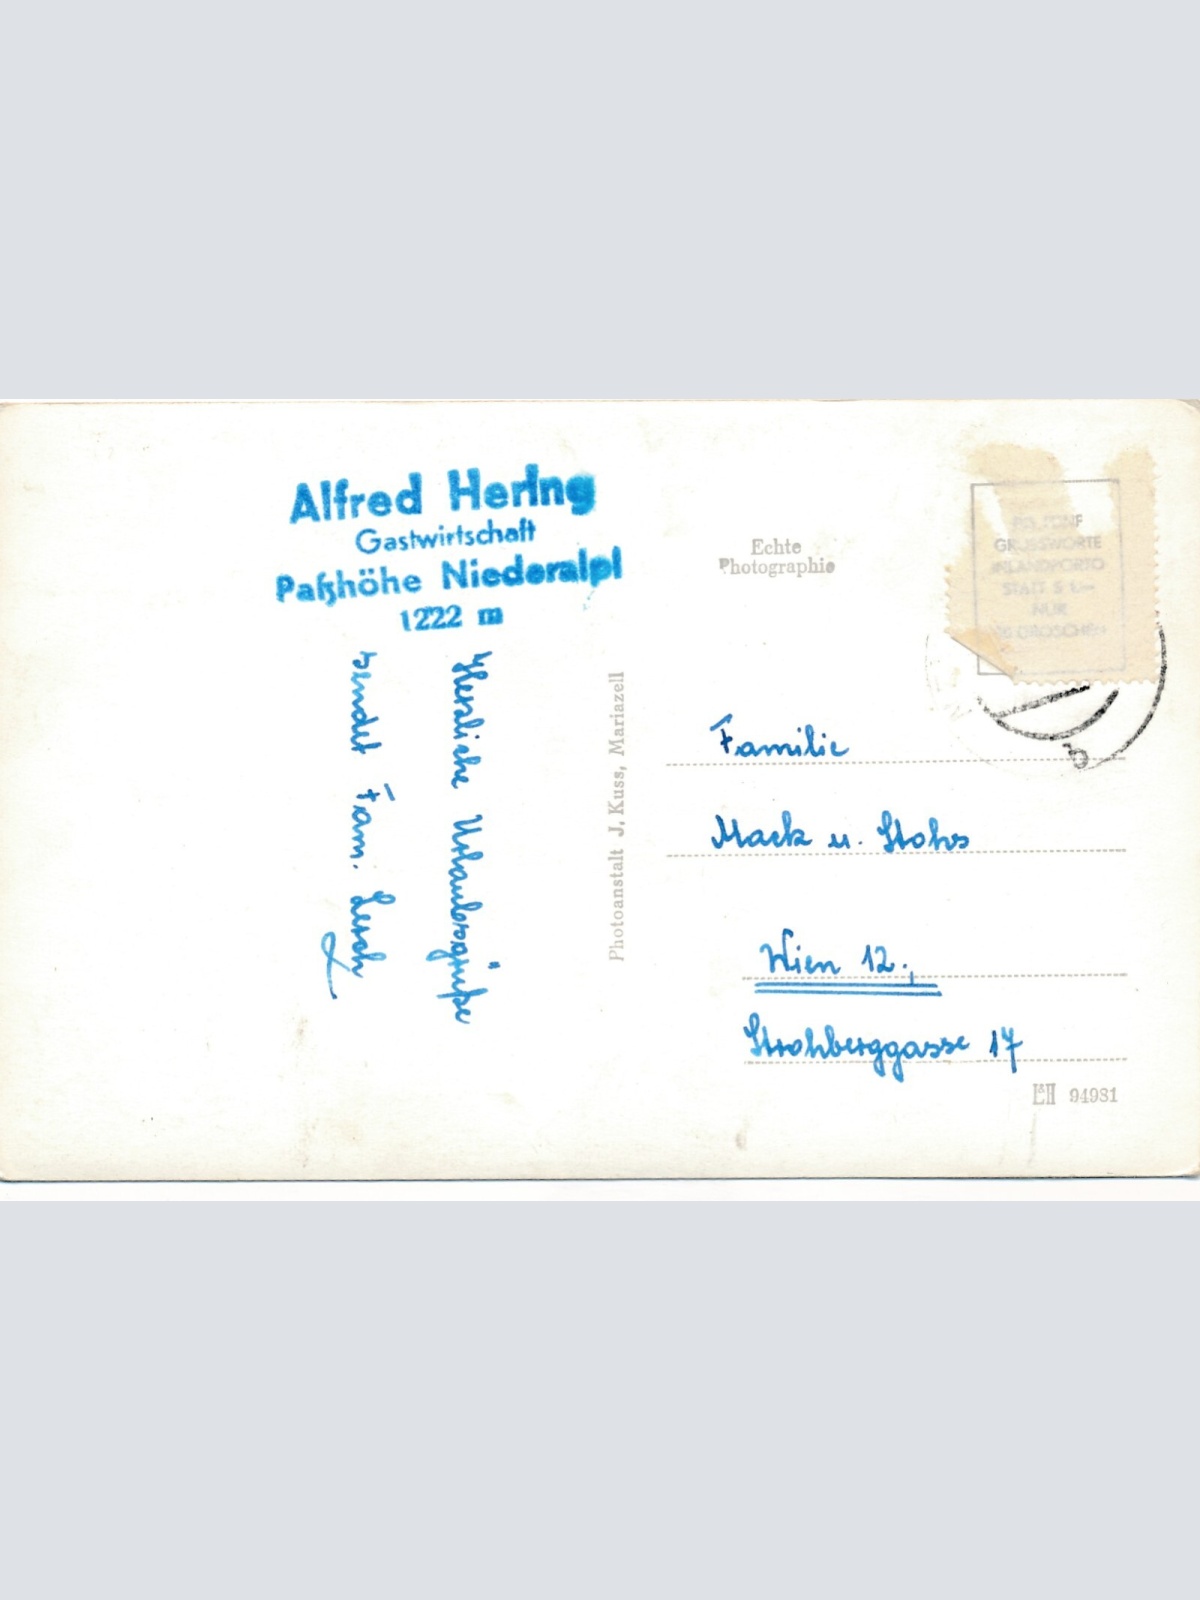 Alfred Hering
Gastwirtschaft
Paßhöhe Niederalpl
1222 m
Herzliche Urlaubsgrüße
sendet Fam. Lersch
Photoanstalt J. Kuss, Mariazell
Echte
Photographie
FÜNF
GRUSSWORTE
INLANDPORTO
STATT S 1.—
NUR
GROSCHEN
b
Familie
Mack u. Stohs
Wien 12.,
Strohberggasse 17
L&H 94981